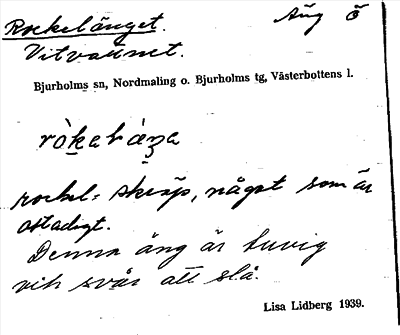 Rockelänget. Äng Ö
Vitvattnet.
Bjurholms sn, Nordmaling o. Bjurholms tg, Västerbottens l.
rockel = skräp, något som är
ostadigt.
Denna äng är tuvig
och svår att slå.
Lisa Lidberg 1939.